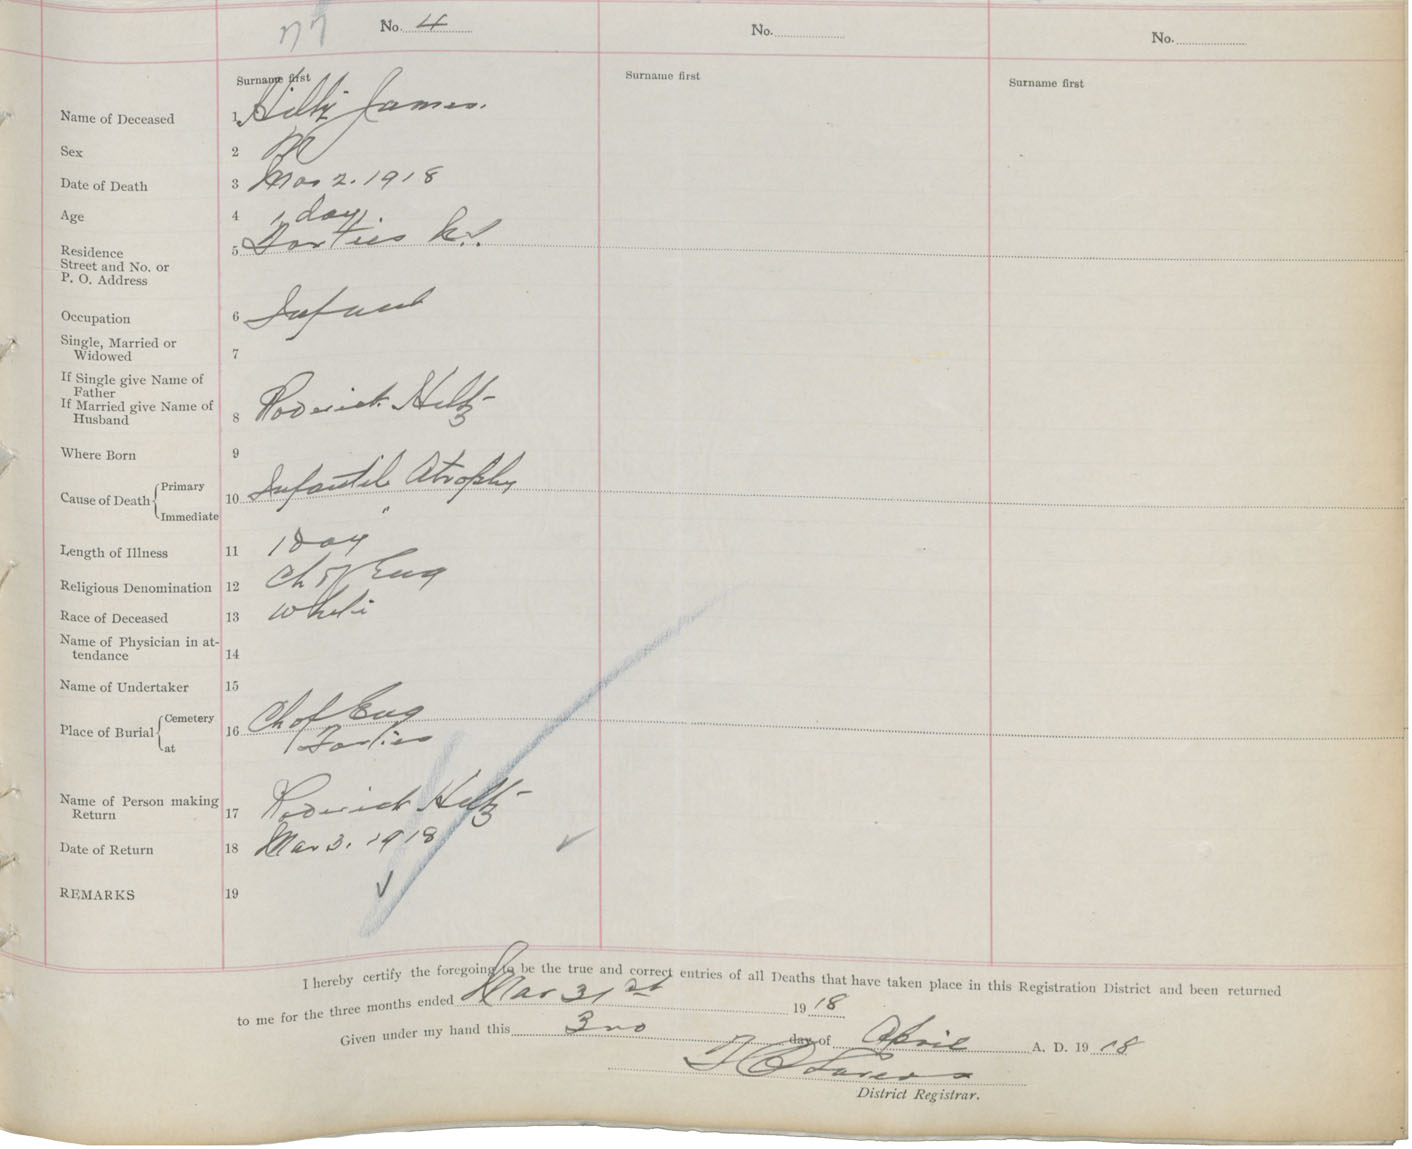 77 No. 4 No. No.
Surname first Surname first Surname first
Name of Deceased 1 Hiltz James.
Sex 2 M
Date of Death 3 Mar 2. 1918
Age 4 1 day
Residence 5 Forties
Street and No. or
P. O. Address
Occupation 6 Infant
Single, Married or
Widowed 7
If Single give Name of
Father
If Married give Name of
Husband 8 Roderick Hiltz
Where Born 9
Cause of Death Primary 10 Infantile Atrophy
Immediate "
Length of Illness 11 1 Day
Religious Denomination 12 Ch of Eng
Race of Deceased 13 White
Name of Physician in at-
tendance 14
Name of Undertaker 15
Place of Burial Cemetery 16 Ch of Eng
at Forties
Name of Person making
Return 17 Roderick Hiltz
Date of Return 18 Mar 3. 1918
REMARKS 19
I hereby certify the foregoing to be the true and correct entries of all Deaths that have taken place in this Registration District and been returned
to me for the three months ended Mar 31st 1918
Given under my hand this 3rd day of April A. D. 1918
District Registrar.